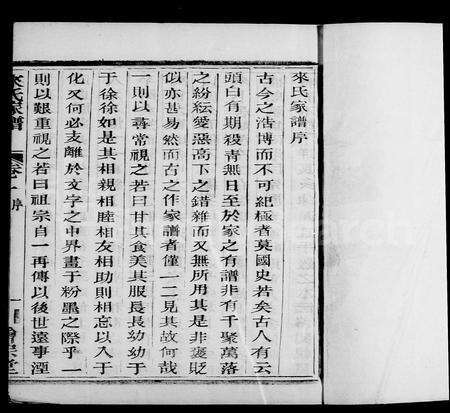 來氏家譜序
古今之浩博而不可紀極者莫國史若矣古人有云
頭白有期殺青無日至於家之有譜非有千聚萬落
之紛紜愛惡高下之錯雜而又無所用其是非褒貶
似亦甚易然而古之作家譜者僅一二見其故何哉
一則以尋常視之若曰甘其食美其服長長幼幼于
于徐徐如是其相親相睦相友相助則相忘以入于
化又何必支離於文字之中界畫于粉墨之際乎一
則以艱重視之若曰祖宗自一再傳以後世遠事湮
來氏家譜
卷一 序
一
會宗堂